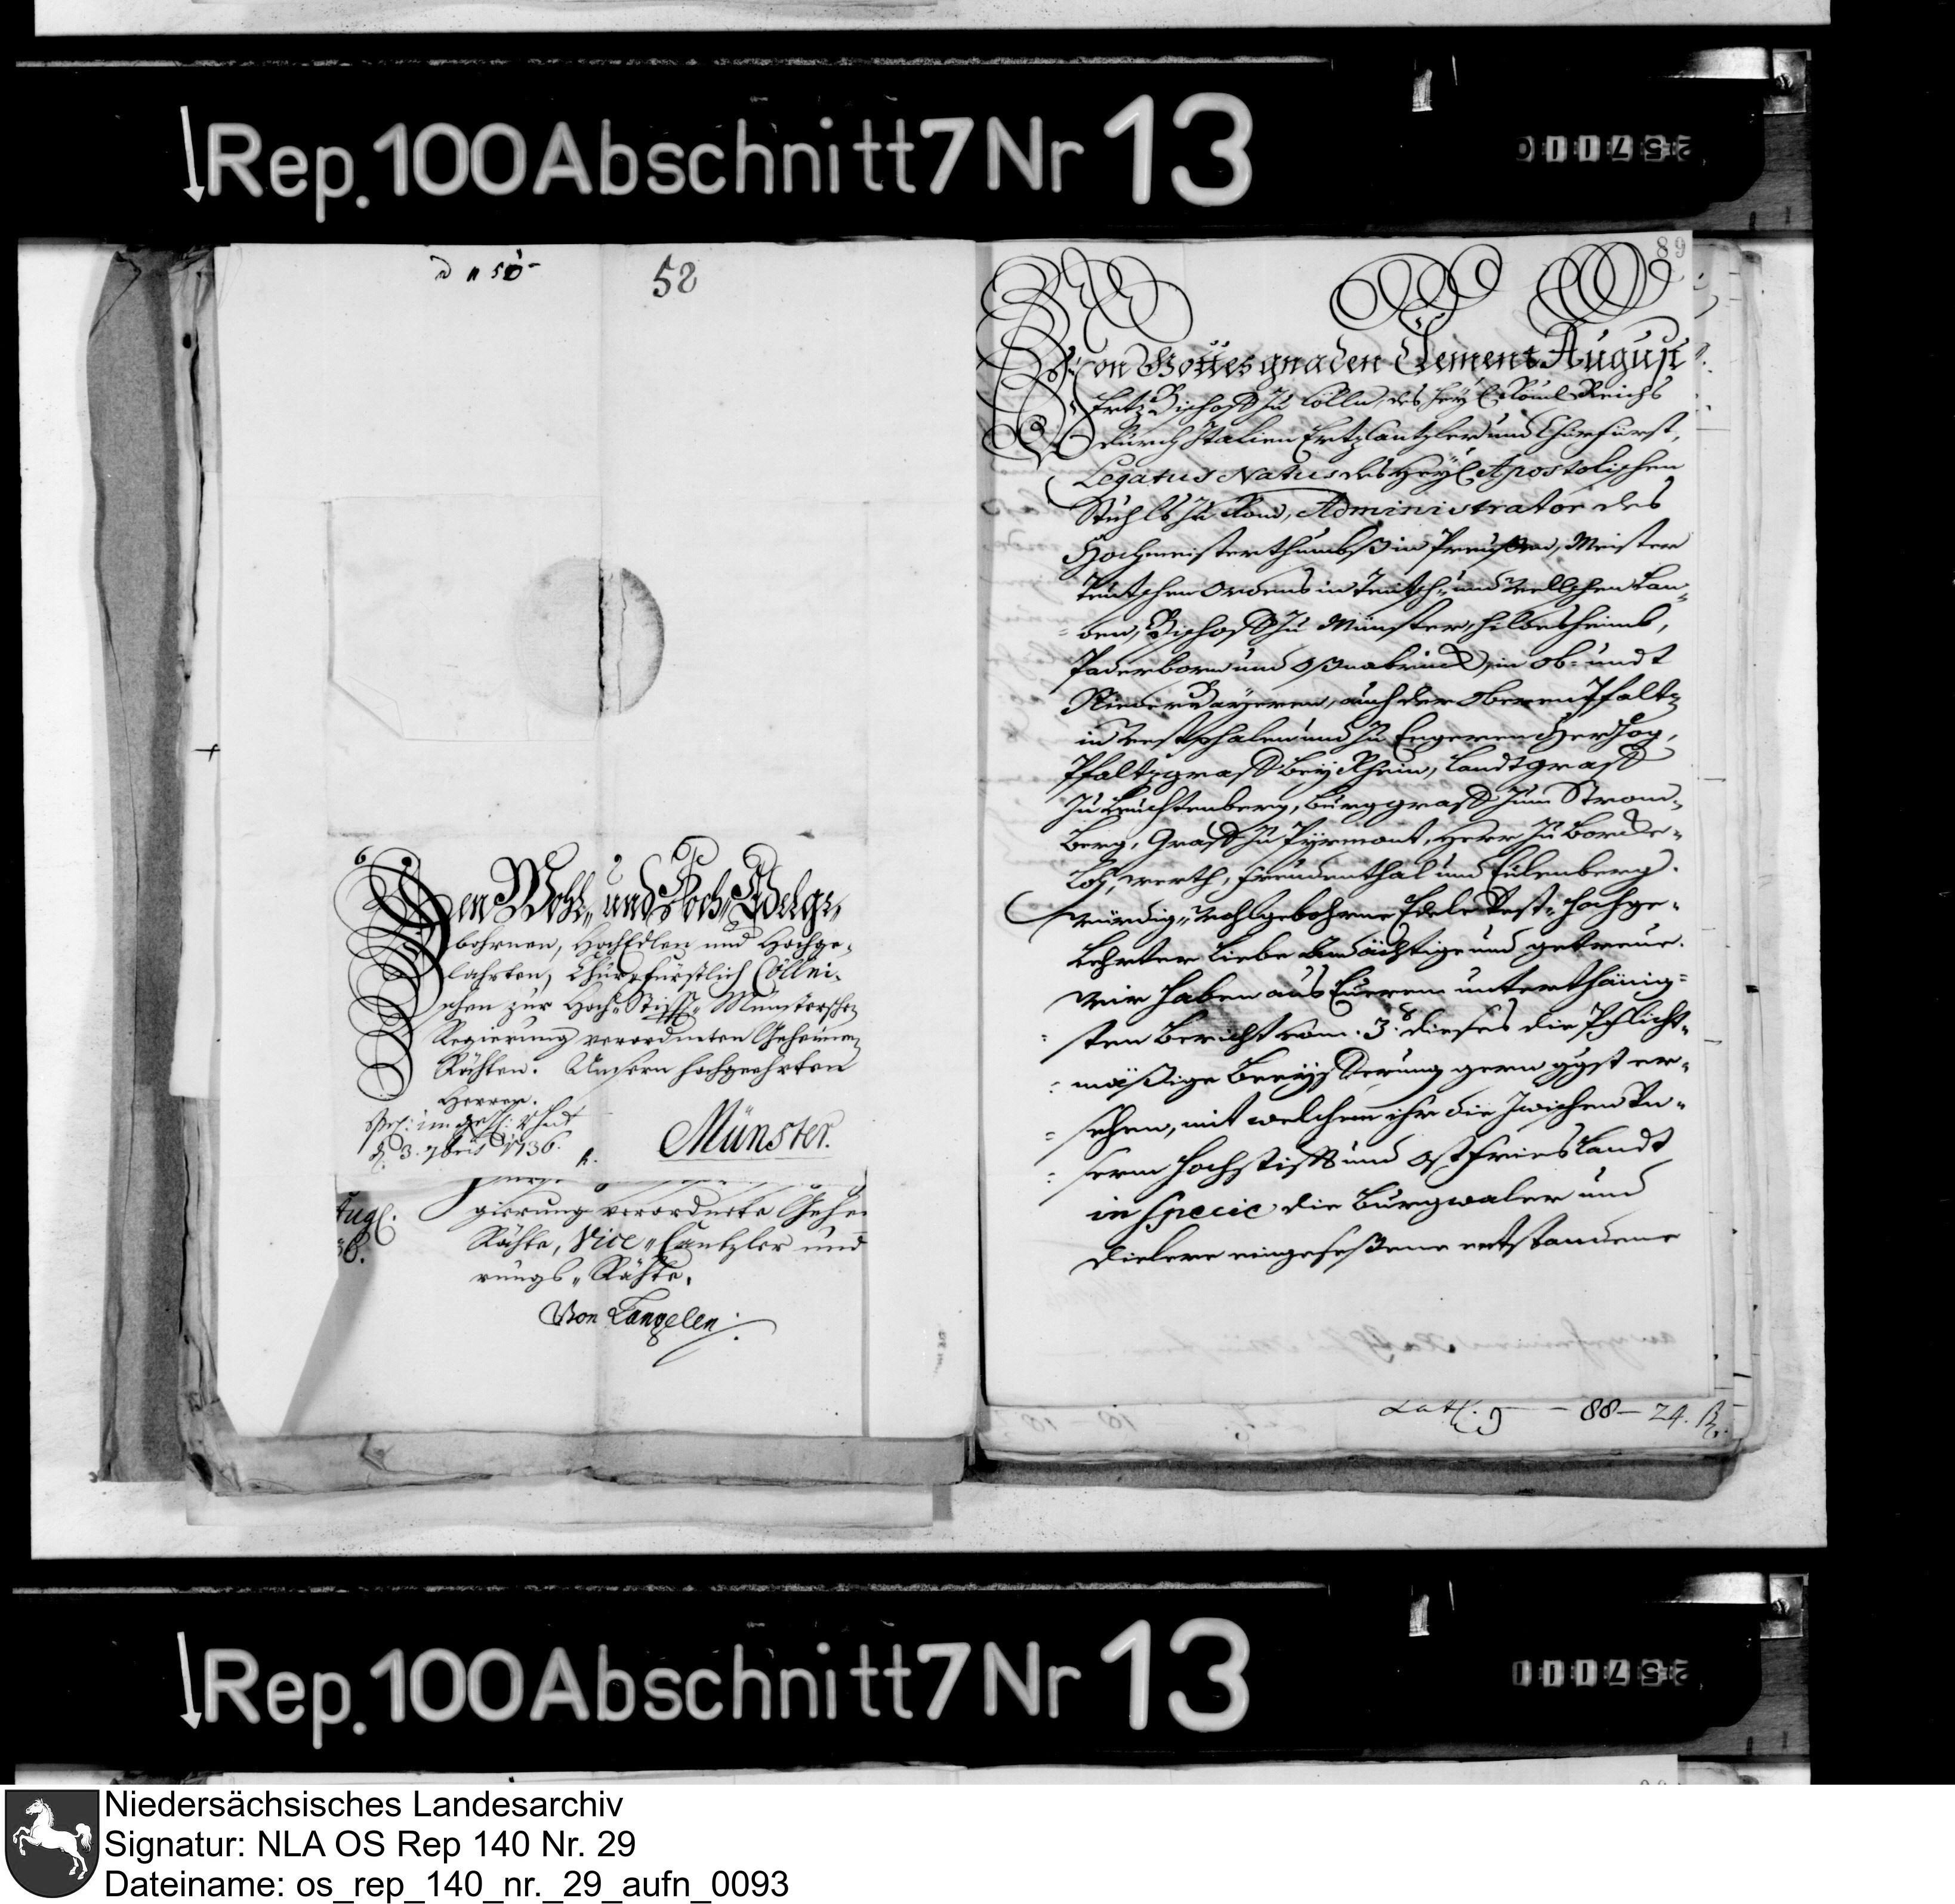 Rep. 100 Abschnitt 7 Nr 13
25 7 1 1 0
58
Den Wohl„ und Hoch„Edelge„
bohrnen, HochEdlen und Hochge„
lahrten, Churfürstlich Cöllni„
schen zur Hoch„Stifft„ Münsterschen
Regierung verordneten Geheimen
Räthen. Unsern hochgeehrten
Herren.
d. 3. 7bris 1736.
Münster.
Aug.
36.
gierung verordnete Gehei
Räthe, Vice„Cantzler und
rungs„Räthe.
Von Langelen
89
Von Gottes gnaden Clement August
Ertz Bischoff zu Cölln, des Heyl. Röml. Reichs
durch Italien Ertz Cantzler und Churfürst,
Legatus Natus des Heyl. Apostolischen
Stuhls zu Rom, Administrator des
Hochmeisterthumbs in Preußen, Meister
Teutschen Ordens in Teutsch„ und Wellschen Lan„
den, Bischoff zu Münster, Hildesheimb,
Paderborn und Oßnabrück, in Ob- undt
Nieder Bayeren, auch der Oberen Pfaltz
in Westphalen und zu Engeren Hertzog,
Pfaltzgraff bey Rhein, Landtgraff
zu Leuchtenberg, Burggraff zum Strom„
berg, Graff zu Pyrmont, Herr zu Borcke„
loh, Werth, Freudenthal und Eulenberg.
Würdig„ Wohlgebohrne Edele Vest„ Hochge„
Lehrter Liebe Andächtige und getreue.
Wir haben aus Euerem unterthänig„
sten Bericht vom 3. dieses die Pflicht„
mäßige gern ggst er„
sehen, mit welchem ihr die zwischen Un„
serm Hochstifft und Ostfrieslandt
in specie die Burgwaler und
Dielere eingeseßene entstandene
88 — 24.
Rep. 100 Abschnitt 7 Nr 13
25 7 1 1 1
Niedersächsisches Landesarchiv
Signatur: NLA OS Rep 140 Nr. 29
Dateiname: os_rep_140_nr._29_aufn_0093